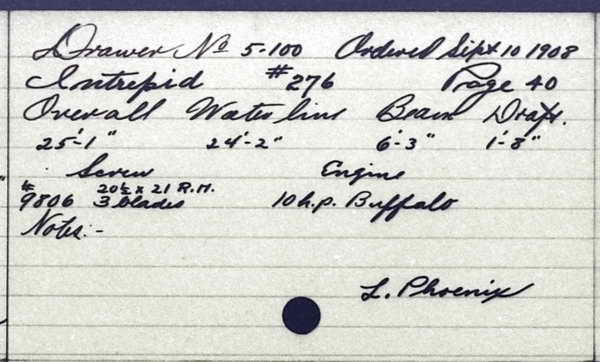 Drawer No 5-100 Ordered Sept 10 1908
Intrepid #276 Page 40
Overall Waterline Beam Draft.
25'-1" 24'-2" 6'-3" 1'-8"
Screw Engine
#9806 20½ x 21 R.H. 3 blades 10 h.p. Buffalo
Notes:-
L. Phoenix